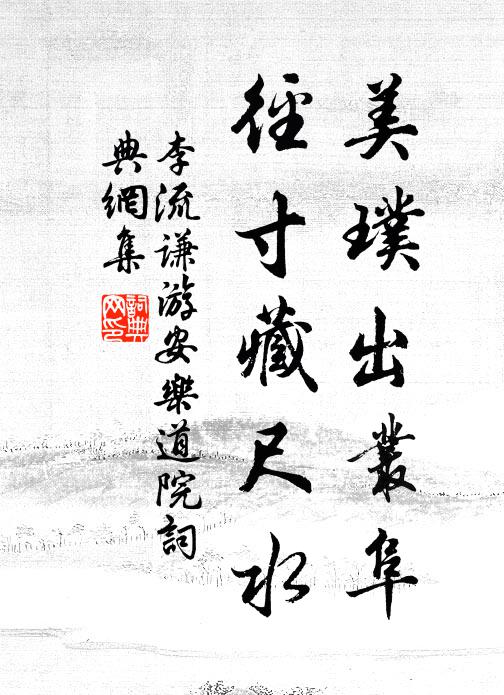 美璞出叢阜
徑寸藏尺水
李流謙游安樂道院詞
典網集
詞典
网印